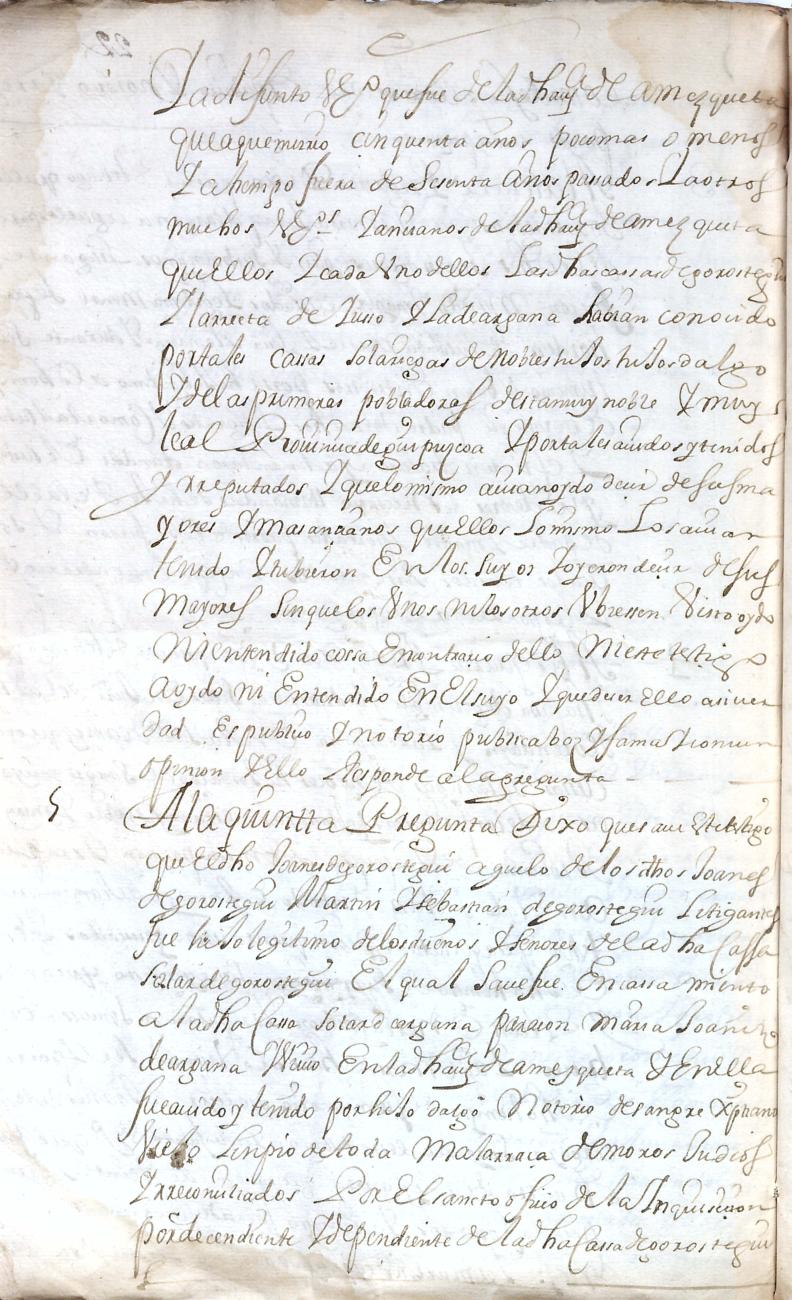 Ya difunto Vº que fue de la dha uni de amezqueta
que a que murio cinquenta años poco mas o menos
Y a tiempo fuera de sesenta años passados Y a otros
muchos Vºs Y ancianos de la dha uni de amezqueta
que Ellos Y cada Uno dellos Las dhas cassas de gorostegui
Y larreta de Yusso Y La de argana habian conocido
por tales cassas solariegas de nobles hijos hijos dalgo
Y de las primeras pobladoras desta muy noble Y muy
leal Provinçia de guipuzcoa Y por tales auidos y tenidos
Y rreputados Y que lo mismo auian oydo decir de sus ma
yores Y mas ancianos que Ellos Lo mismo Lo auian
tenido Y tubieron En los suyos Y oyeron decir de sus
Mayores sin que los Unos ni los otros Vbiessen Visto oydo
Ni entendido cossa En contrario dello Ni este testigo
a oydo ni Entendido En El suyo Y que de ser Ello asi ver
dad Es publico Y notorio publica boz Y fama Y comun
opinion Y Ello Responde a la pregunta
5 A la quintta Pregunta Dixo que saue Este testigo
que El dho Joanes de gorostegui aguelo de los dhos Joanes
de gorostegui Martin Y sebastian de gorostegui Litigantes
fue hijo legitimo de los dueños Y señores de la dha Cassa
solar de gorostegui El qual saue fue En cassamiento
a la dha Cassa solar de argana para con Maria Joaniz
de argana Vecino En la dha uni de amezqueta Y En Ella
fue auido y tenido por hijo dalgo Notorio de sangre Xptiano
Viejo Linpio de toda Mala rraca de moros Judios
Y rreconciliados Por El sancto oficio de la Inquisicion
por decendiente Y dependiente de la dha Cassa de gorostegui